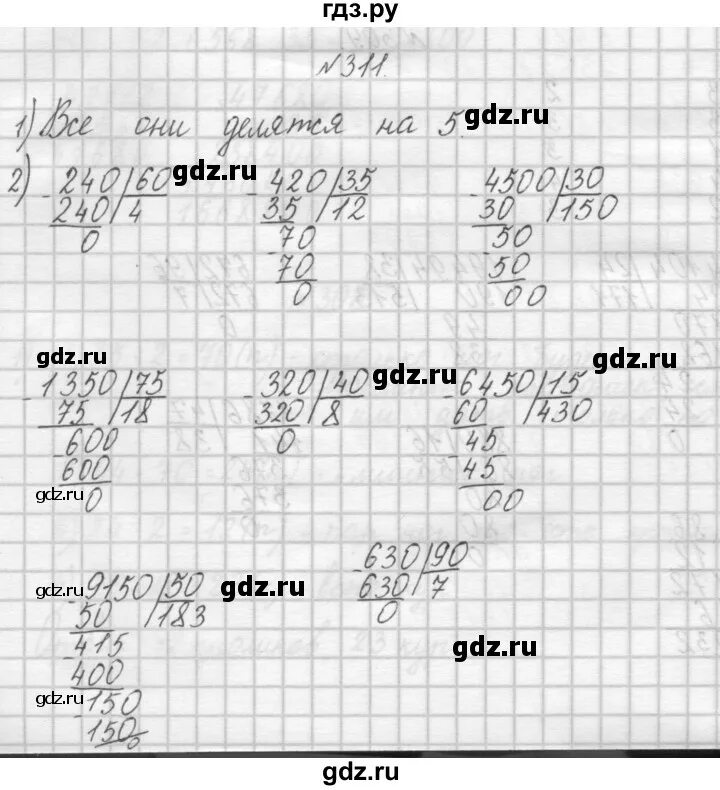 гдз.ру
№311.
1) Все они делятся на 5.
gdz.ru
2) - 240 | 60
240 | 4
0
gdz.ru
- 420 | 35
35 | 12
- 70
70
0
gdz.ru
- 4500 | 30
30 | 150
- 50
50
00
gdz.ru
- 1350 | 75
75 | 18
- 600
600
0
gdz.ru
- 320 | 40
320 | 8
0
gdz.ru
gdz.ru
- 6450 | 15
60 | 430
- 45
45
00
gdz.ru
- 9150 | 50
50 | 183
- 415
400
- 150
150
0
gdz.ru
gdz.ru
- 630 | 90
630 | 7
0
gdz.ru
gdz.ru
gdz.ru